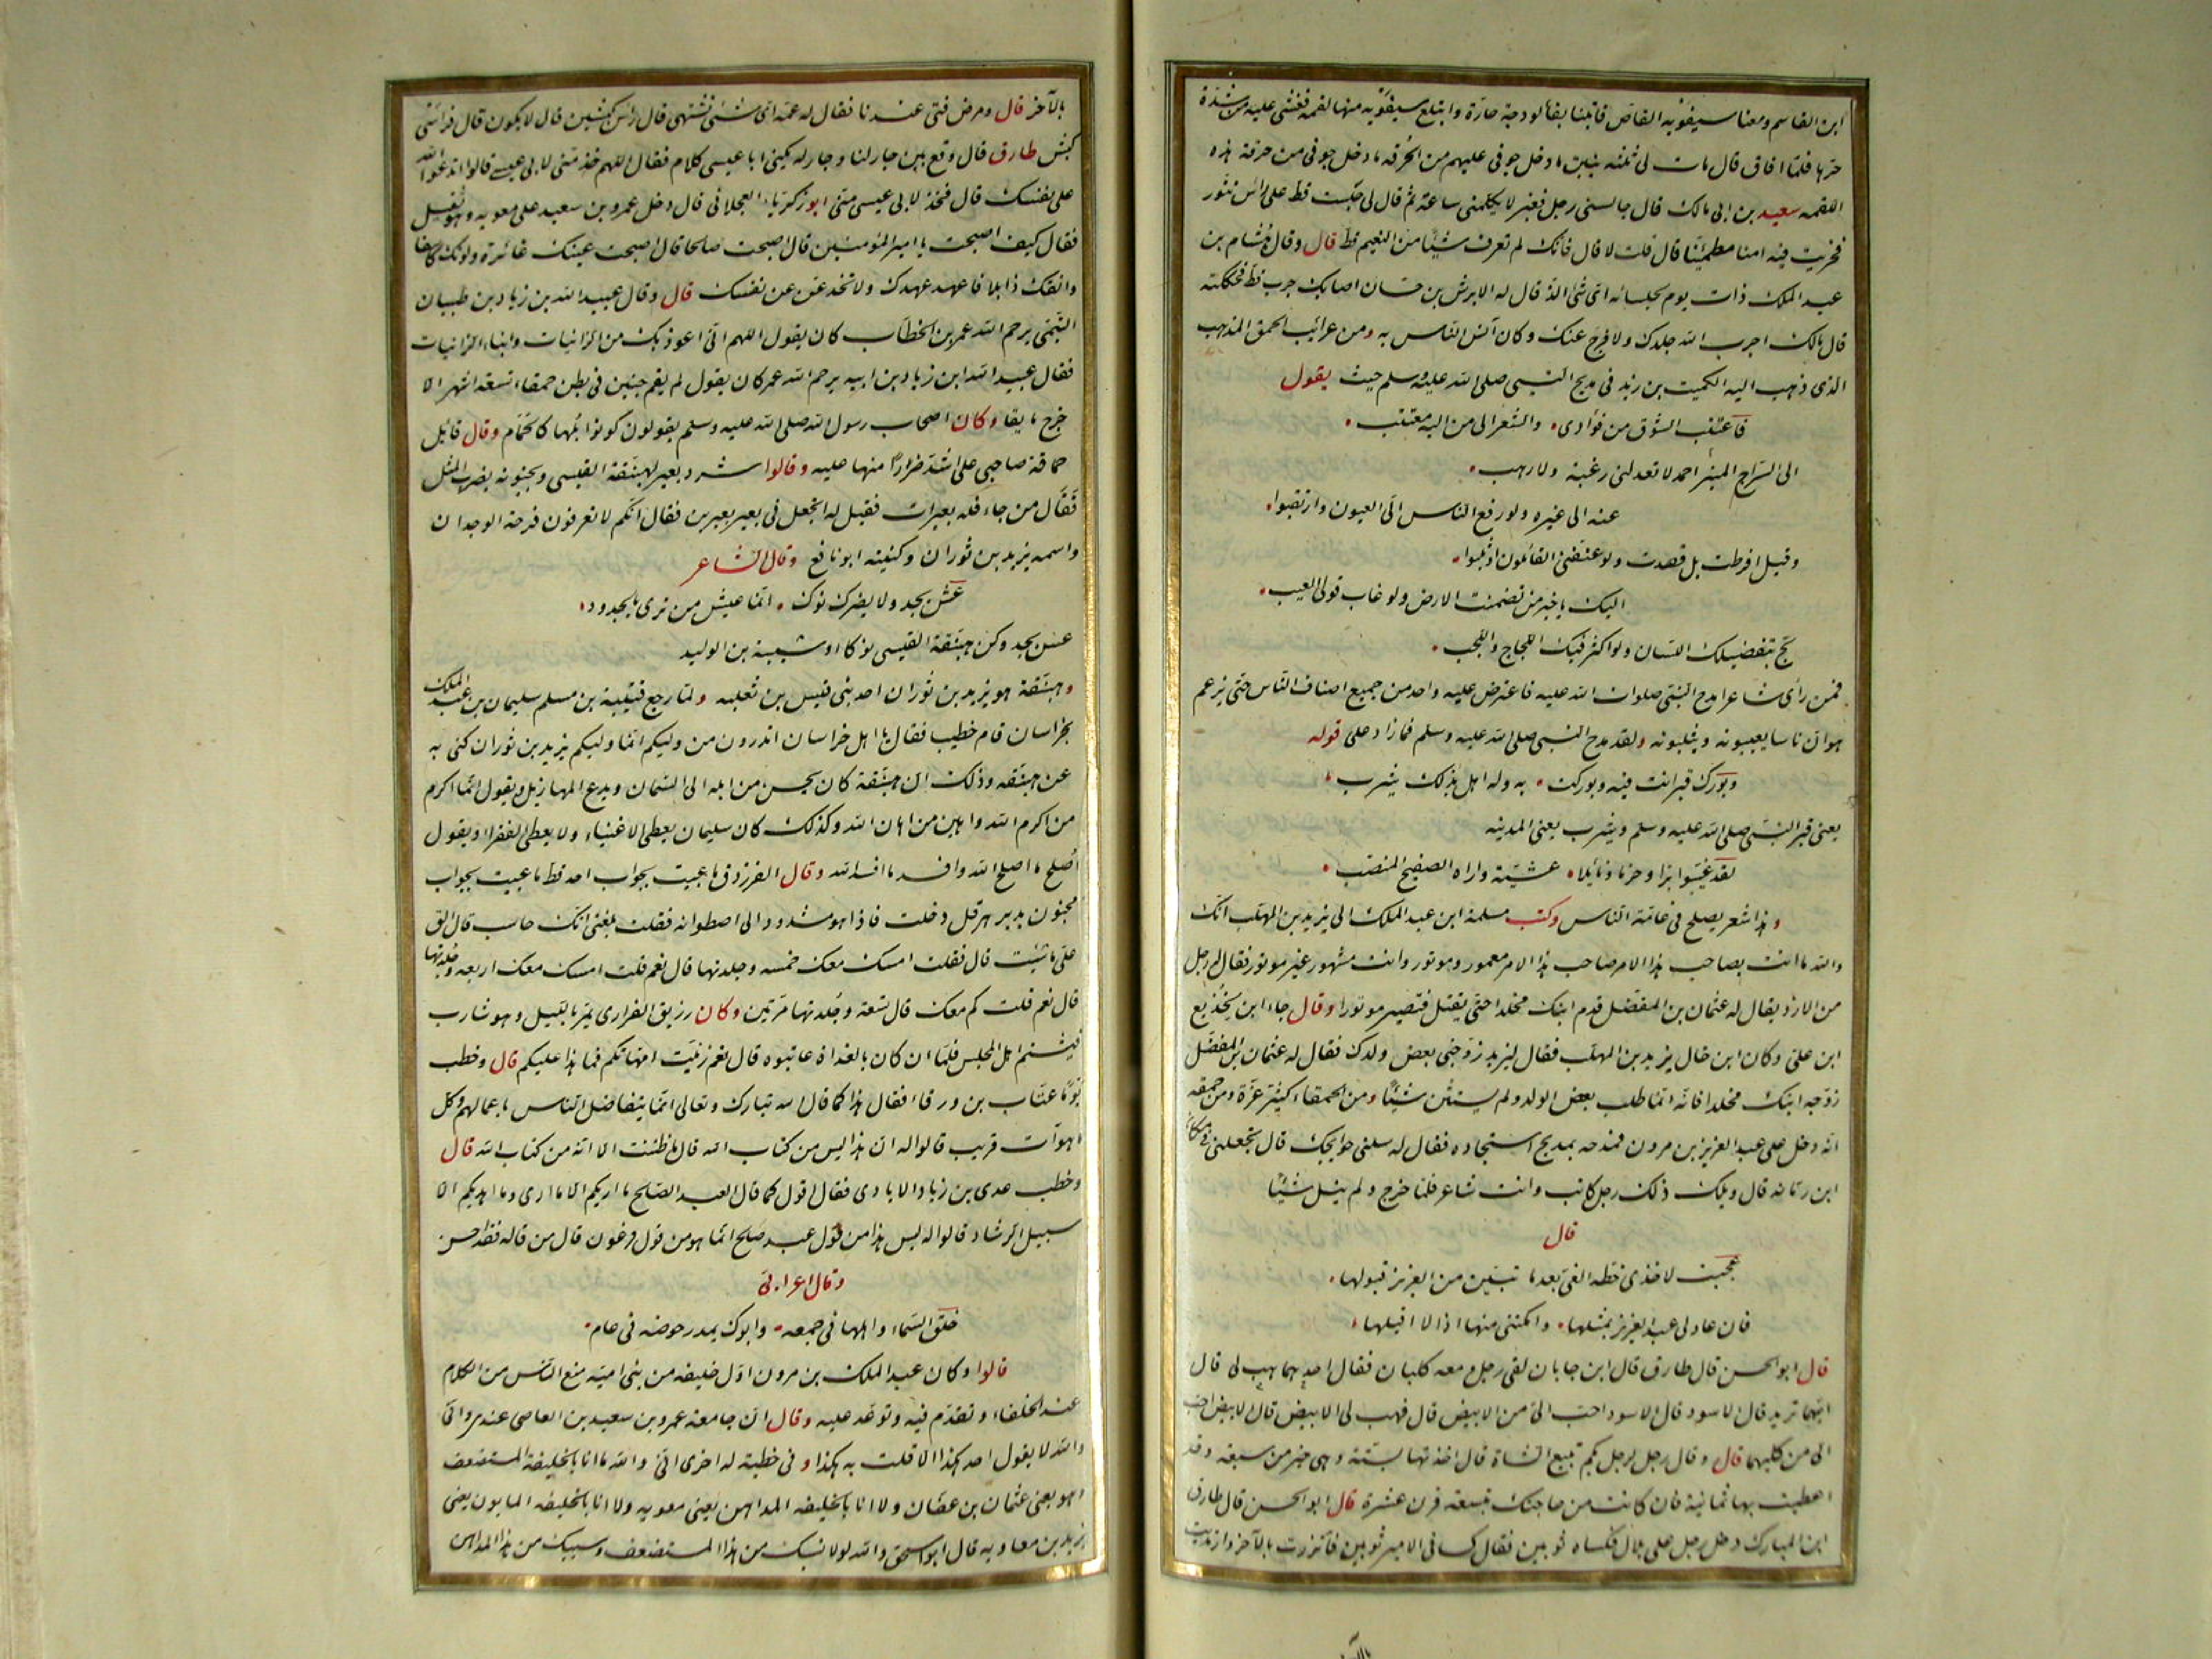 ابن القاسم ومعنا سيفويه القاص فاتينا بفالوذجة حارة وابتلع سيفويه منها لقمة فغشى عليه من شدة
حرها فلما افاق قال مات لى ثلثة بنين ما دخل جوفى عليهم من الحرقة ما دخل جوفى من حرقة هذه
اللقمه سعيد بن ابى مالك قال جالسنى رجل فغبر لا يكلمنى ساعة ثم قال لى جلست قط على راس تنور
فخريت فيه امنا مطمئنا قال قلت لا قال فانك لم تعرف شيئا من النعيم قط قال وقال هشام بن
عبد الملك ذات يوم لجلسائه اى شئ الذ قال له الابرش بن حسان اصابك جرب قط فحككته
قال مالك اجرب الله جلدك ولا فرج عنك وكان آنس الناس به ومن غرائب الحمق المذهب
الذى ذهب اليه الكميت بن زيد فى مديح النبى صلى الله عليه وسلم حيث يقول
فاعتتب الشوق من فؤادى والشعر الى من اليه معتتب
الى السراج المنير احمد لا تعدلنى رغبة ولا رهب
عنه الى غيره ولو رفع الناس الى العيون وارتقبوا
وقيل افرطت بل قصدت ولو عنفنى القائلون او ثلبوا
اليك يا خير من تضمنت الارض ولو عاب قولى العيب
لج بتفضيلك اللسان ولو اكثر فيك اللجاج واللجب
فمن رأى شاعرا مدح النبى صلوات الله عليه فاعترض عليه واحد من جميع اصناف الناس حتى يزعم
هو ان ناسا يعيبونه ويثلبونه ولقد مدح النبى صلى الله عليه وسلم فما زاد على قوله
وبورك قبر انت فيه وبوركت به وله اهل بذلك يثرب
يعنى قبر النبى صلى الله عليه وسلم ويثرب يعنى المدينه
لقد غيبوا برا وحزما ونايلا عشية واراه الصفيح المنصب
وهذا شعر يصلح فى عامة الناس وكتب مسلمة ابن عبد الملك الى يزيد بن المهلب انك
والله ما انت بصاحب هذا الامر صاحب هذا الامر مغمور وموتور وانت مشهور غير موتور فقال له رجل
من الازد يقال له عثمان بن المفضل قدم ابنك مخلدا حتى يقتل فتصير موتورا وقال جاء ابن لجديع
ابن على وكان ابن خال يزيد بن المهلب فقال ليزيد زوجنى بعض ولدك فقال له عثمان بن المفضل
زوجه ابنك مخلدا فانه انما طلب بعض الولد ولم يستثن شيئا ومن الحمقاء كثير عزة ومن حمقه
انه دخل على عبد العزيز بن مرون فمدحه بمديح استجاده فقال له سلنى حوايجك قال تجعلنى فى مكان
ابن رمانه قال ويلك ذلك رجل كاتب وانت شاعر فلما خرج ولم ينل شيئا
قال
عجبت لاخذى خطة الغى بعد ما تبين من العزيز قبولها
فان عاد لى عبد العزيز بمثلها وامكننى منها اذا لا اقيلها
قال ابو الحسن قال طارق قال ابن جابان لقى رجل رجل ومعه كلبان فقال احدهما هب لى قال
ايهما تريد قال الاسود قال الاسود احب الى من الابيض قال فهب لى الابيض قال الابيض احب
الى من كليهما قال وقال رجل لرجل بكم تبيع الشاة قال اخذتها بستة وهى خير من سبعة وقد
اعطيت بها ثمانية فان كانت من حاجتك بتسعة فزن عشرة قال ابو الحسن قال طارق
ابن المبارك دخل رجل على بلال فكساه ثوبين فقال كسانى الامير ثوبين فاتزرت بالآخر وارتديت
بالآخر قال ومرض فتى عندنا فقال له عمه اى شئ تشتهى قال رأس كبشين قال لا يكون قال فراسى
كبش طارق قال وقع بين جار لنا وجار له يكنى ابا عيسى كلام فقال اللهم خذ منى لابى عيسى قالوا تدعو الله
على نفسك قال فخذ لابى عيسى منى ابو زكرياء العجلانى قال دخل عمرو بن سعيد على معويه وهو ثقيل
فقال كيف اصبحت يا امير المؤمنين قال اصبحت صالحا قال اصبحت عينك غائرة ولونك كاسفا
وانفك ذابلا فاعهد عهدك ولا تخدعن عن نفسك قال وقال عبيد الله بن زياد بن ظبيان
التيمى يرحم الله عمر بن الخطاب كان يقول اللهم انى اعوذ بك من الزانيات وابناء الزانيات
فقال عبيد الله ابن زياد بن ابيه يرحم الله عمر كان يقول لم يقم جنين فى بطن حمقاء تسعة اشهر الا
خرج مايقا وكان اصحاب رسول الله صلى الله عليه وسلم يقولون كونوا بلها كالحمام وقال قايل
حماقة صاحبى على اشد ضرارا منها عليه وقالوا شرد بعير لهبنقة القيسى وبجنونه يضرب المثل
فقال من جاء فله بعيران فقيل له اتجعل فى بعير بعيرين فقال انكم لا تعرفون فرحة الوجدان
واسمه يزيد بن ثوران وكنيته ابو نافع وقال الشاعر
عش بجد ولا يضرك نوك انما عيش من ترى بالجدود
عش بجد وكن هبنقة القيسى نوكا او شيبة بن الوليد
وهبنقة هو يزيد بن ثوران احد بنى قيس بن ثعلبه ولما رجع قتيبة بن مسلم سليمان بن عبد الملك
بخراسان قام خطيب فقال يا اهل خراسان اتدرون من وليكم انما وليكم يزيد بن ثوران كنى به
عن هبنقه وذلك ان هبنقة كان يحسن من ابله الى السمان ويدع المهازيل ويقول انما اكرم
من اكرم الله واهين من اهان الله وكذلك كان سليمان يعطى الاغنياء ولا يعطى الفقرا ويقول
اصلح ما اصلح الله وافسد ما افسد الله وقال الفرزدق ما عييت بجواب احد قط ما عييت بجواب
مجنون بدير هرقل دخلت فاذا هو مشدود الى اصطوانه فقلت بلغنى انك حاسب قال الق
على ما شئت قال فقلت امسك معك خمسه وجلدتها قال نعم قلت امسك معك اربعه وجلدتها
قال نعم قلت كم معك قال تسعة وجلدتها مرتين وكان رزيق الفزارى يمر بالليل وهو شارب
فيشتم اهل المجلس فلما ان كان بالغداة عاتبوه قال نعم زنيت امهاتكم فما هذا عليكم قال وخطب
يوما عتاب بن ورقاء فقال هذا كما قال الله تبارك وتعالى انما يتفاضل الناس باعمالهم وكل
ما هو آت قريب قالوا له ان هذا ليس من كتاب الله قال ما ظننت الا انه من كتاب الله قال
وخطب عدى بن زياد الايادى فقال اقول كما قال العبد الصالح ما اريكم الا ما ارى وما اهديكم الا
سبيل الرشاد قالوا له ليس هذا من قول عبد صالح انما هو من قول فرعون قال من قاله فقد احسن
وقال اعرابى
خلق السماء واهلها فى جمعه وابوك يمدر حوضه فى عام
قالوا وكان عبد الملك بن مرون اول خليفه من بنى اميه منع الناس من الكلام
عند الخلفاء وتقدم فيه وتوعد عليه وقال ان جامعة عمرو بن سعيد بن العاصى عندى وانى
والله لا يقول احد هكذا الا قلت به هكذا وفى خطبة له اخرى انى والله ما انا بالخليفة المستضعف
وهو يعنى عثمان بن عفان ولا انا بالخليفه المداهن يعنى معويه ولا انا بالخليفه المابون يعنى
يزيد بن معاويه قال ابو اسحق والله لولا نسبك من هذا المستضعف وسببك من هذا المداهن